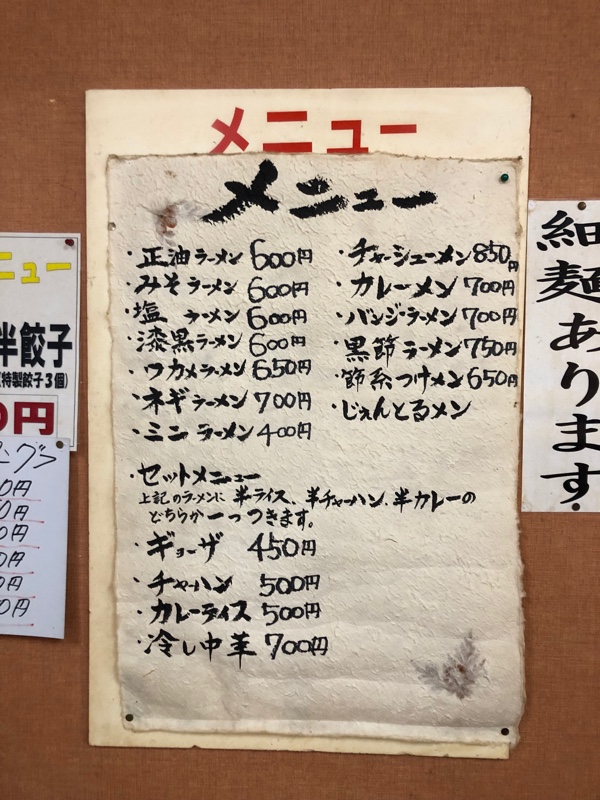 メニュー
メニュー
・正油ラーメン 600円
・みそラーメン 600円
・塩 ラーメン 600円
・漆黒ラーメン 600円
・ワカメラーメン 650円
・ネギラーメン 700円
・ミニラーメン 400円
・チャーシューメン 850円
・カレーメン 700円
・バンジ・ラーメン 700円
・黒節ラーメン 750円
・節系つけメン 650円
・じぇんとるメン
・セットメニュー
上記のラーメンに 半ライス、半チャーハン、半カレーの
どちらか一っつきます。
・ギョーザ 450円
・チャーハン 500円
・カレーライス 500円
・冷し中華 700円
細麺あります
ニュー
半餃子
(特製餃子3個)
0円
0円
0円
0円
0円
0円
0円